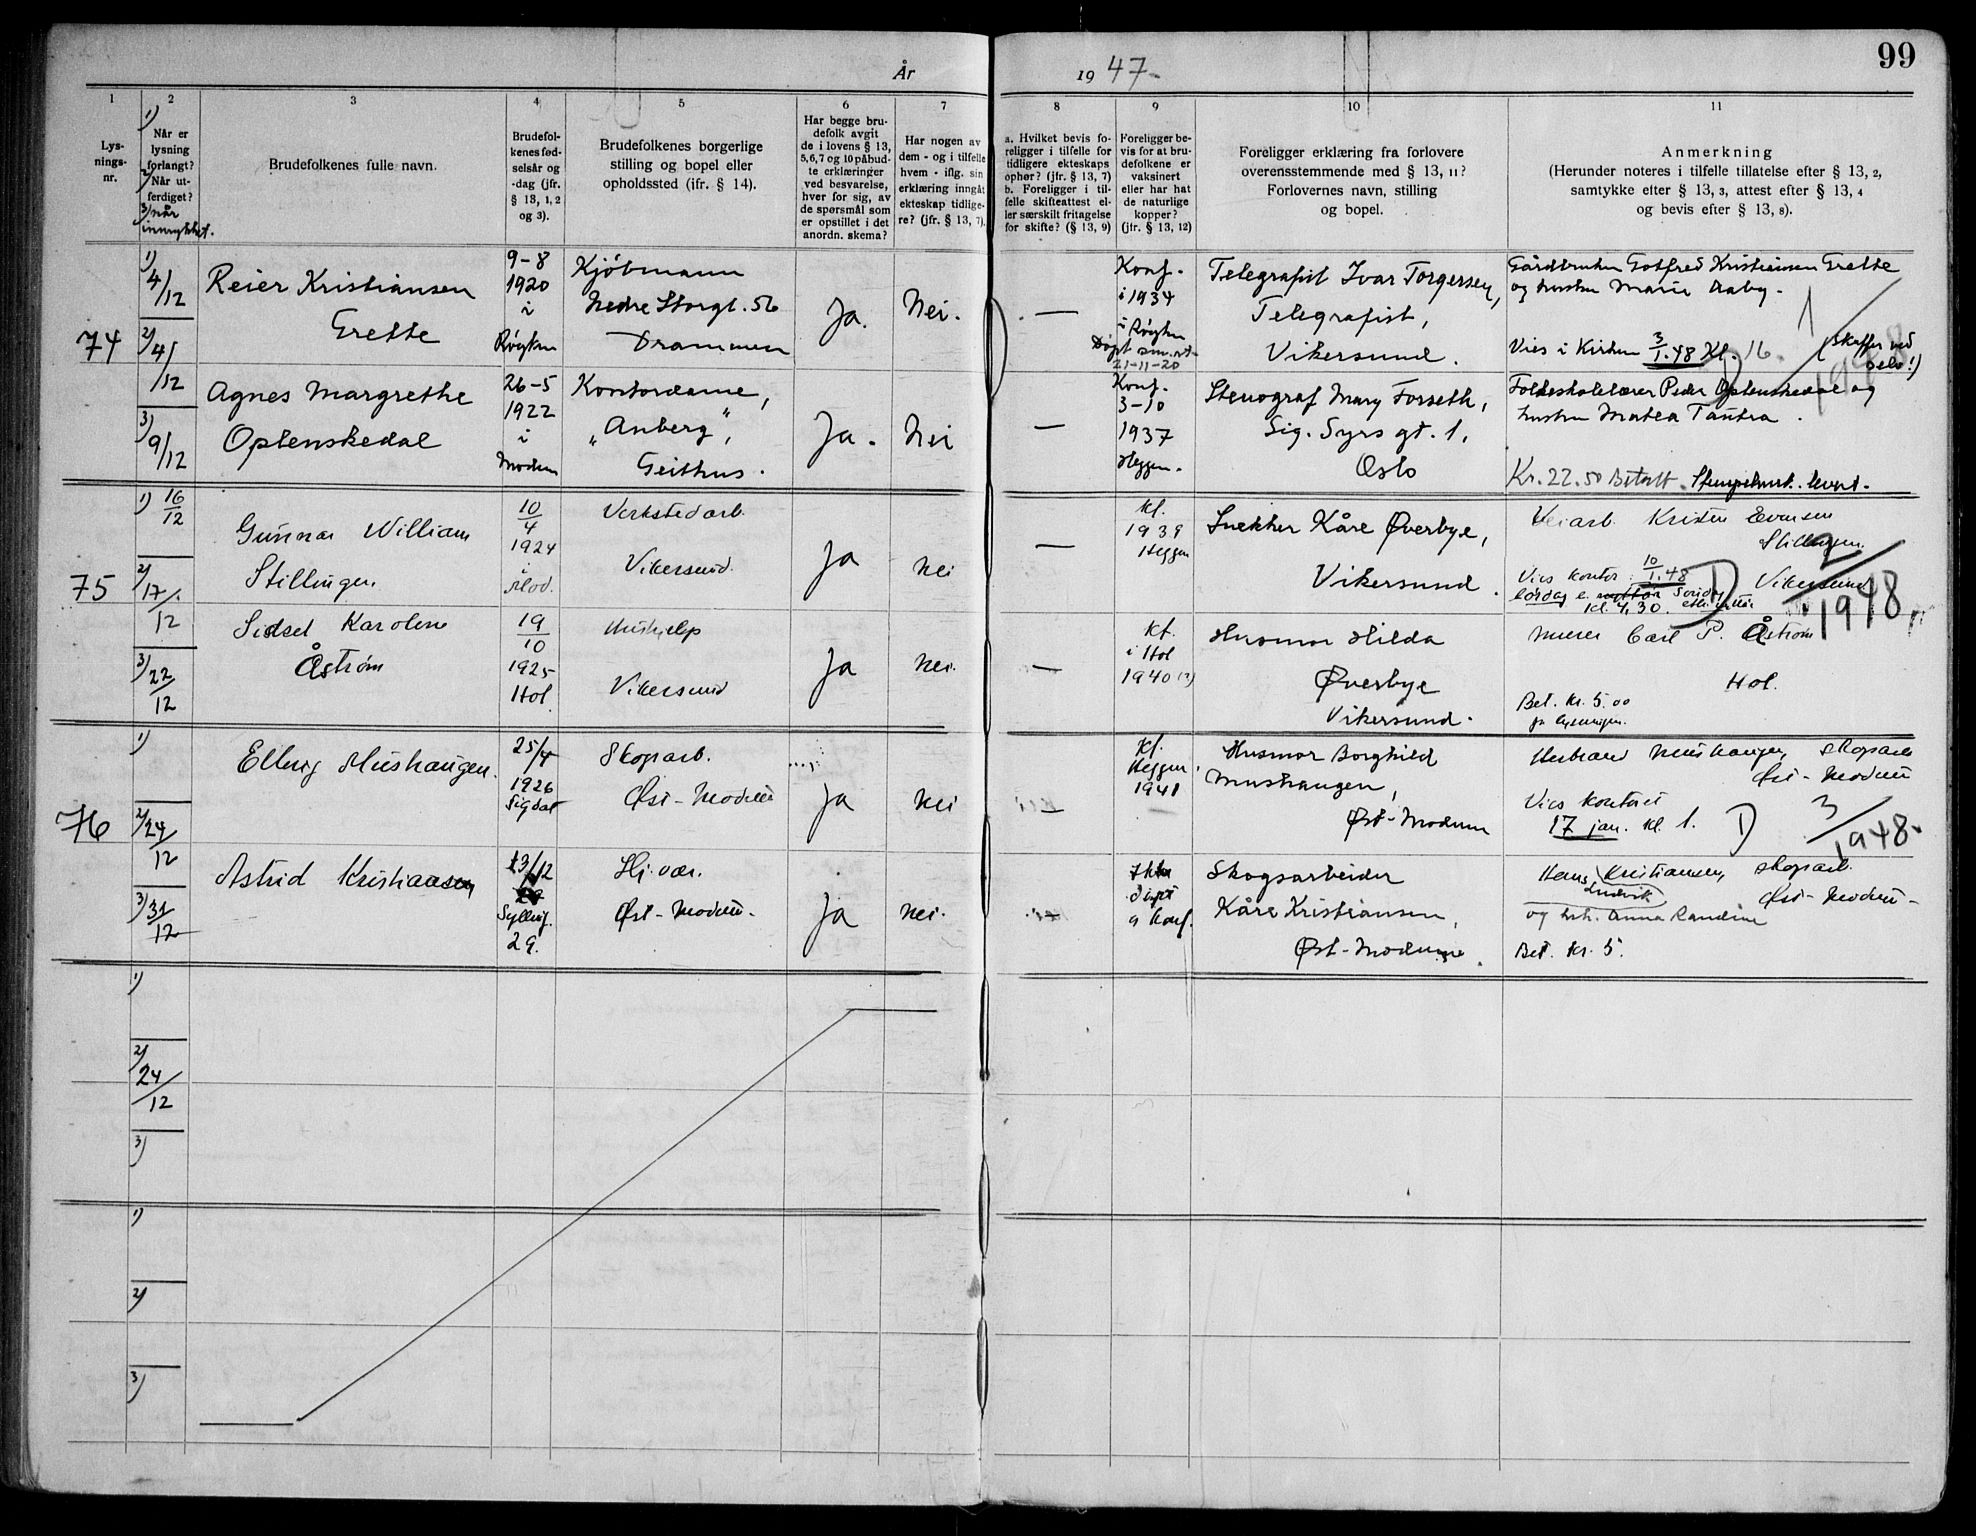 99
År
19 47.
1
2
3
4
5
6
7
8
9
10
11
Lys-
nings-
nr.
1)
Når er
lysning
forlangt?
2)
Når ut-
ferdiget?
3) når
innrykket.
Brudefolkenes fulle navn.
Brudefol-
kenes fød-
selsår og
-dag (jfr.
§ 13, 1, 2
og 3).
Brudefolkenes borgerlige
stilling og bopel eller
opholdssted (jfr. § 14).
Har begge bru-
defolk avgit
de i lovens § 13,
5,6,7 og 10 påbud-
te erklæringer
ved besvarelse,
hver for sig, av
de spørsmål som
er opstillet i det
anordn. skema?
Har nogen av
dem - og i tilfelle
hvem - iflg. sin
erklæring inngåt
ekteskap tidlige-
re? (jfr. § 13, 7).
a. Hvilket bevis fo-
religger i tilfelle for
tidligere ekteskaps
ophør? (jfr. § 13, 7)
b. Foreligger i til-
felle skifteattest el-
ler særskilt fritagelse
for skifte? (§ 13, 9)
Foreligger be-
vis for at bru-
defolkene er
vaksinert
eller har hat
de naturlige
kopper?
(jfr. § 13, 12)
Foreligger erklæring fra forlovere
overensstemmende med § 13, 11?
Forlovernes navn, stilling
og bopel.
Anmerkning
(Herunder noteres i tilfelle tillatelse efter § 13, 2,
samtykke efter § 13, 3, attest efter § 13, 4
og bevis efter § 13, 8).
74
1) 4/12
2) 4/12
3) 9/12
Reier Kristiansen
Grette
9-8
1920
i
Røyken
Kjøbmann
Nedre Storgt. 56
Drammen
Ja.
Nei.
—
Konf.
i 1934
i Røyken
Døpt sm.st.
21-11-20
Telegrafist Ivar Torgersen,
Telegrafist,
Vikersund.
Gårdbruker Gotfred Kristiansen Grette
og hustru Marie Aaby.
Vies i Kirken 3/1.48 Kl. 16. (Skaffer ved
selv!)
1/1948
Agnes Margrethe
Oplenskedal
26-5
1922
i
Modum
Kontordame,
"Anberg",
Geithus.
Ja.
Nei
—
Konf.
3-10
1937
Heggen.
Stenograf Mary Forseth,
Sig. Syrs gt. 1,
Oslo
Folkeskolelærer Peder Oplenskedal og
hustru Matea Tandra.
Kr. 22.50 Betalt. Stempelmrk. levert.
75
1) 16/12
2) 17/12
3) 22/12
Gunnar William
Stillingen.
10/4
1924
i
Mod.
Verkstedarb.
Vikersund.
Ja
nei
—
kf.
1939
Heggen
Snekker Kåre Øverbye,
Vikersund.
Veiarb. Kristen Evensen
Stillingen.
Vikersund
Vies kontor 10/1.48
lørdag
kl. 4.30.
D 2/1948
Sidsel Karoline
Åstrøm
19/10
1925
Hol.
Hushjelp
Vikersund
Ja
nei.
—
kf.
i Hol
1940 (?)
Husmor Hilda
Øverbye
Vikersund.
murer Carl P. Åstrøm
Hol.
Bet. kr. 5.00
for lysningen.
76
1)
2) 24/12
3) 31/12
Ellevig Mushaugen.
25/4
1926
Sigdal
Skogarb.
Øst-Modum
Ja
nei
—
Kf.
Heggen
1941
Husmor Borghild
Mushaugen,
Øst-Modum
Herbrand Mushaugen, skogsarb
Øst-Modum
Vies kontoret
17 jan. kl. 1. D 3/1948.
Astrid Kristiansen
13/12
Sylling.
29.
Hj.vær.
Øst-Modum.
Ja
nei.
—
Ikke
døpt
o konf.
Skogsarbeider
Kåre Kristiansen,
Øst-Modum.
Hans Ludvik Kristiansen, skogarb.
Øst-Modum
og hst. Anna Randine
Bet. kr. 5.
1)
2)
24/12
3)
1)
2)
3)